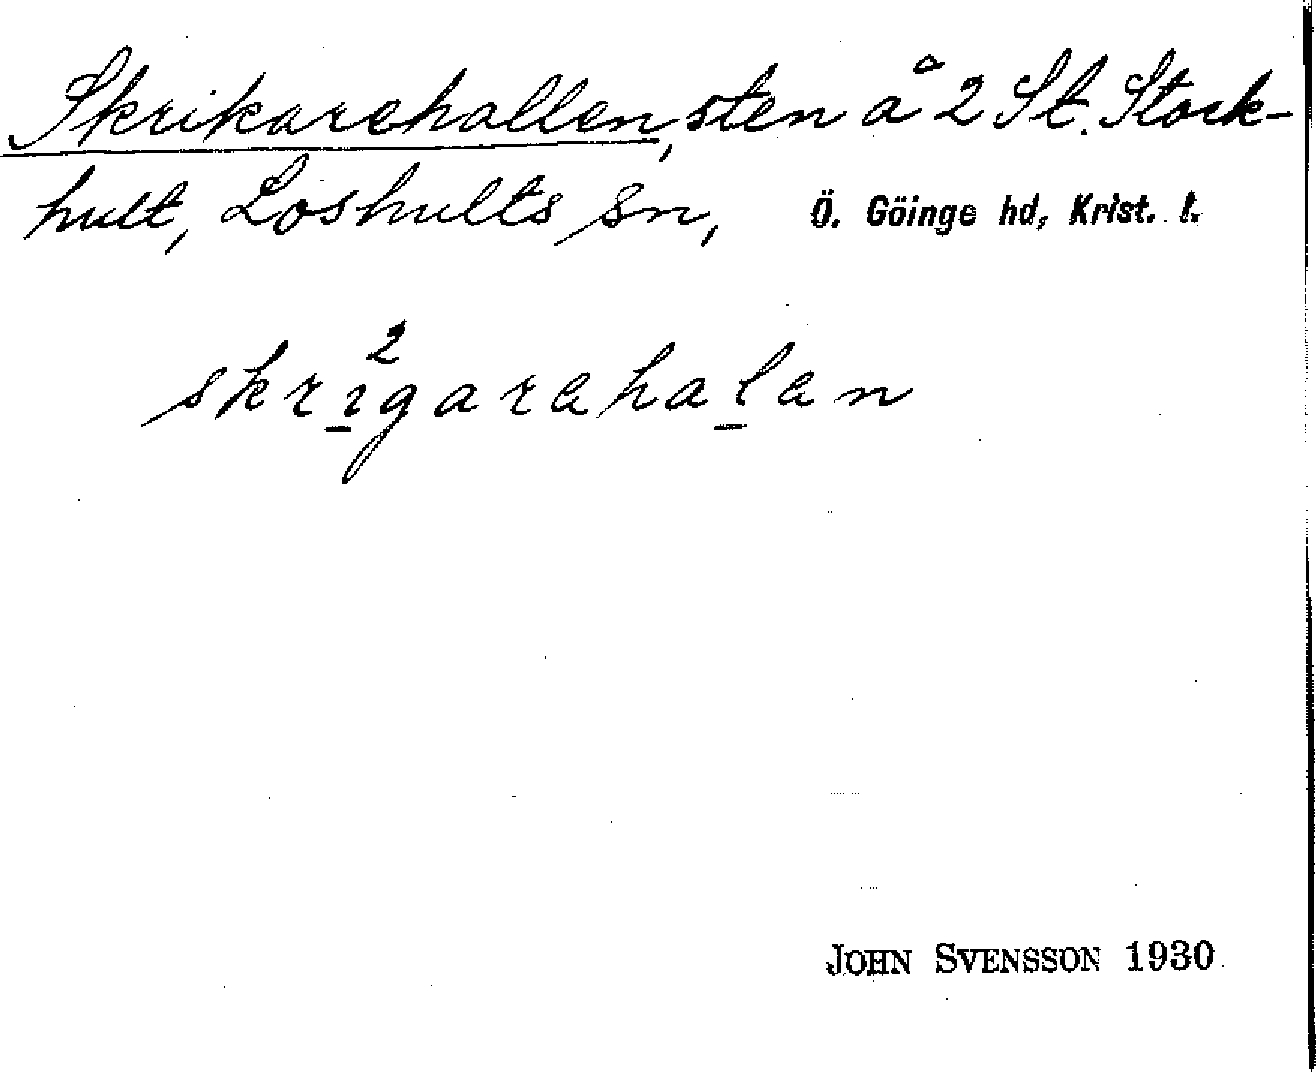 Skrikarehallen, sten å 2 St. Stock-
hult, Loshults sn, Ö. Göinge hd, Krist. l.
2
skrıgarahalan
JOHN SVENSSON 1930